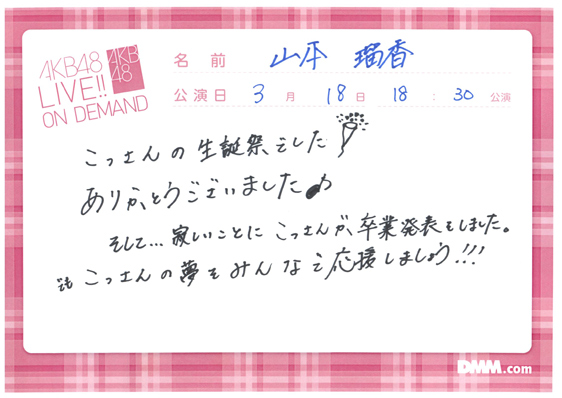 AKB48
LIVE!!
ON DEMAND
AKB
48
名前 山本 瑠香
公演日 3月 18日 18:30 公演
こっさんの生誕祭でした
ありがとうございました♪
そして…寂しいことにこっさんが、卒業発表をしました。
でもこっさんの夢をみんなで応援しましょう!!!
DMM.com